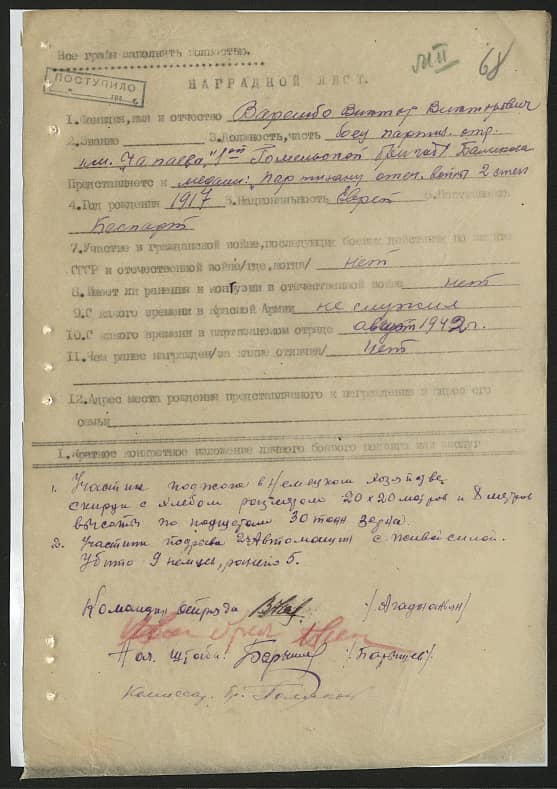 Все графы заполнять полностью.
ПОСТУПИЛО
68
НАГРАДНОЙ ЛИСТ.
1. Фамилия, имя и отчество Виктор Викторович
2. Звание 3. Должность, часть боец партиз. отр.
им. Чапаева, Гомельской бригады
Представляется к медали: партизану отеч. войны 2 степ
4. Год рождения 1917 5. Национальность Еврей 6. Партийность
Беспарт
7. Участие в гражданской войне, последующих боевых действиях по защите
СССР и отечественной войне/где, когда/ нет
8. Имеет ли ранения и контузии в отечественной войне нет
9. С какого времени в Красной Армии не служил
10. С какого времени в партизанском отряде август 1942 г.
11. Чем ранее награжден/за какие отличия/ нет
12. Адрес места рождения представляемого к награждению и адрес его
семьи
I. Краткое конкретное изложение личного боевого подвига или заслуг
1. Участник поджога в Немецком хозяйстве
скирды с хлебом размером 20 х 20 метров и 8 метров
высоты по подщетам 30 тонн зерна.
2. Участник подрыва 2х Автомашин с живой силой.
Убито 9 немцев, ранено 5.
Командир отряда
Нач. Штаба
Комиссар